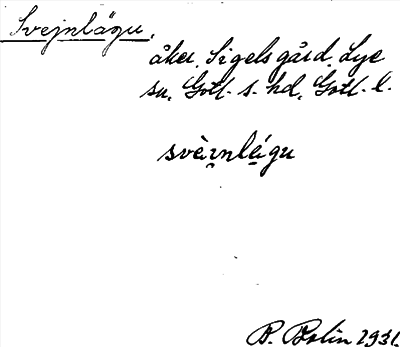 Svejnlágu,
åker, Sigels gård, Lye
sn, Gotl. s. hd, Gotl. l.
svèi̯nlágu
B. Bolin 1931.